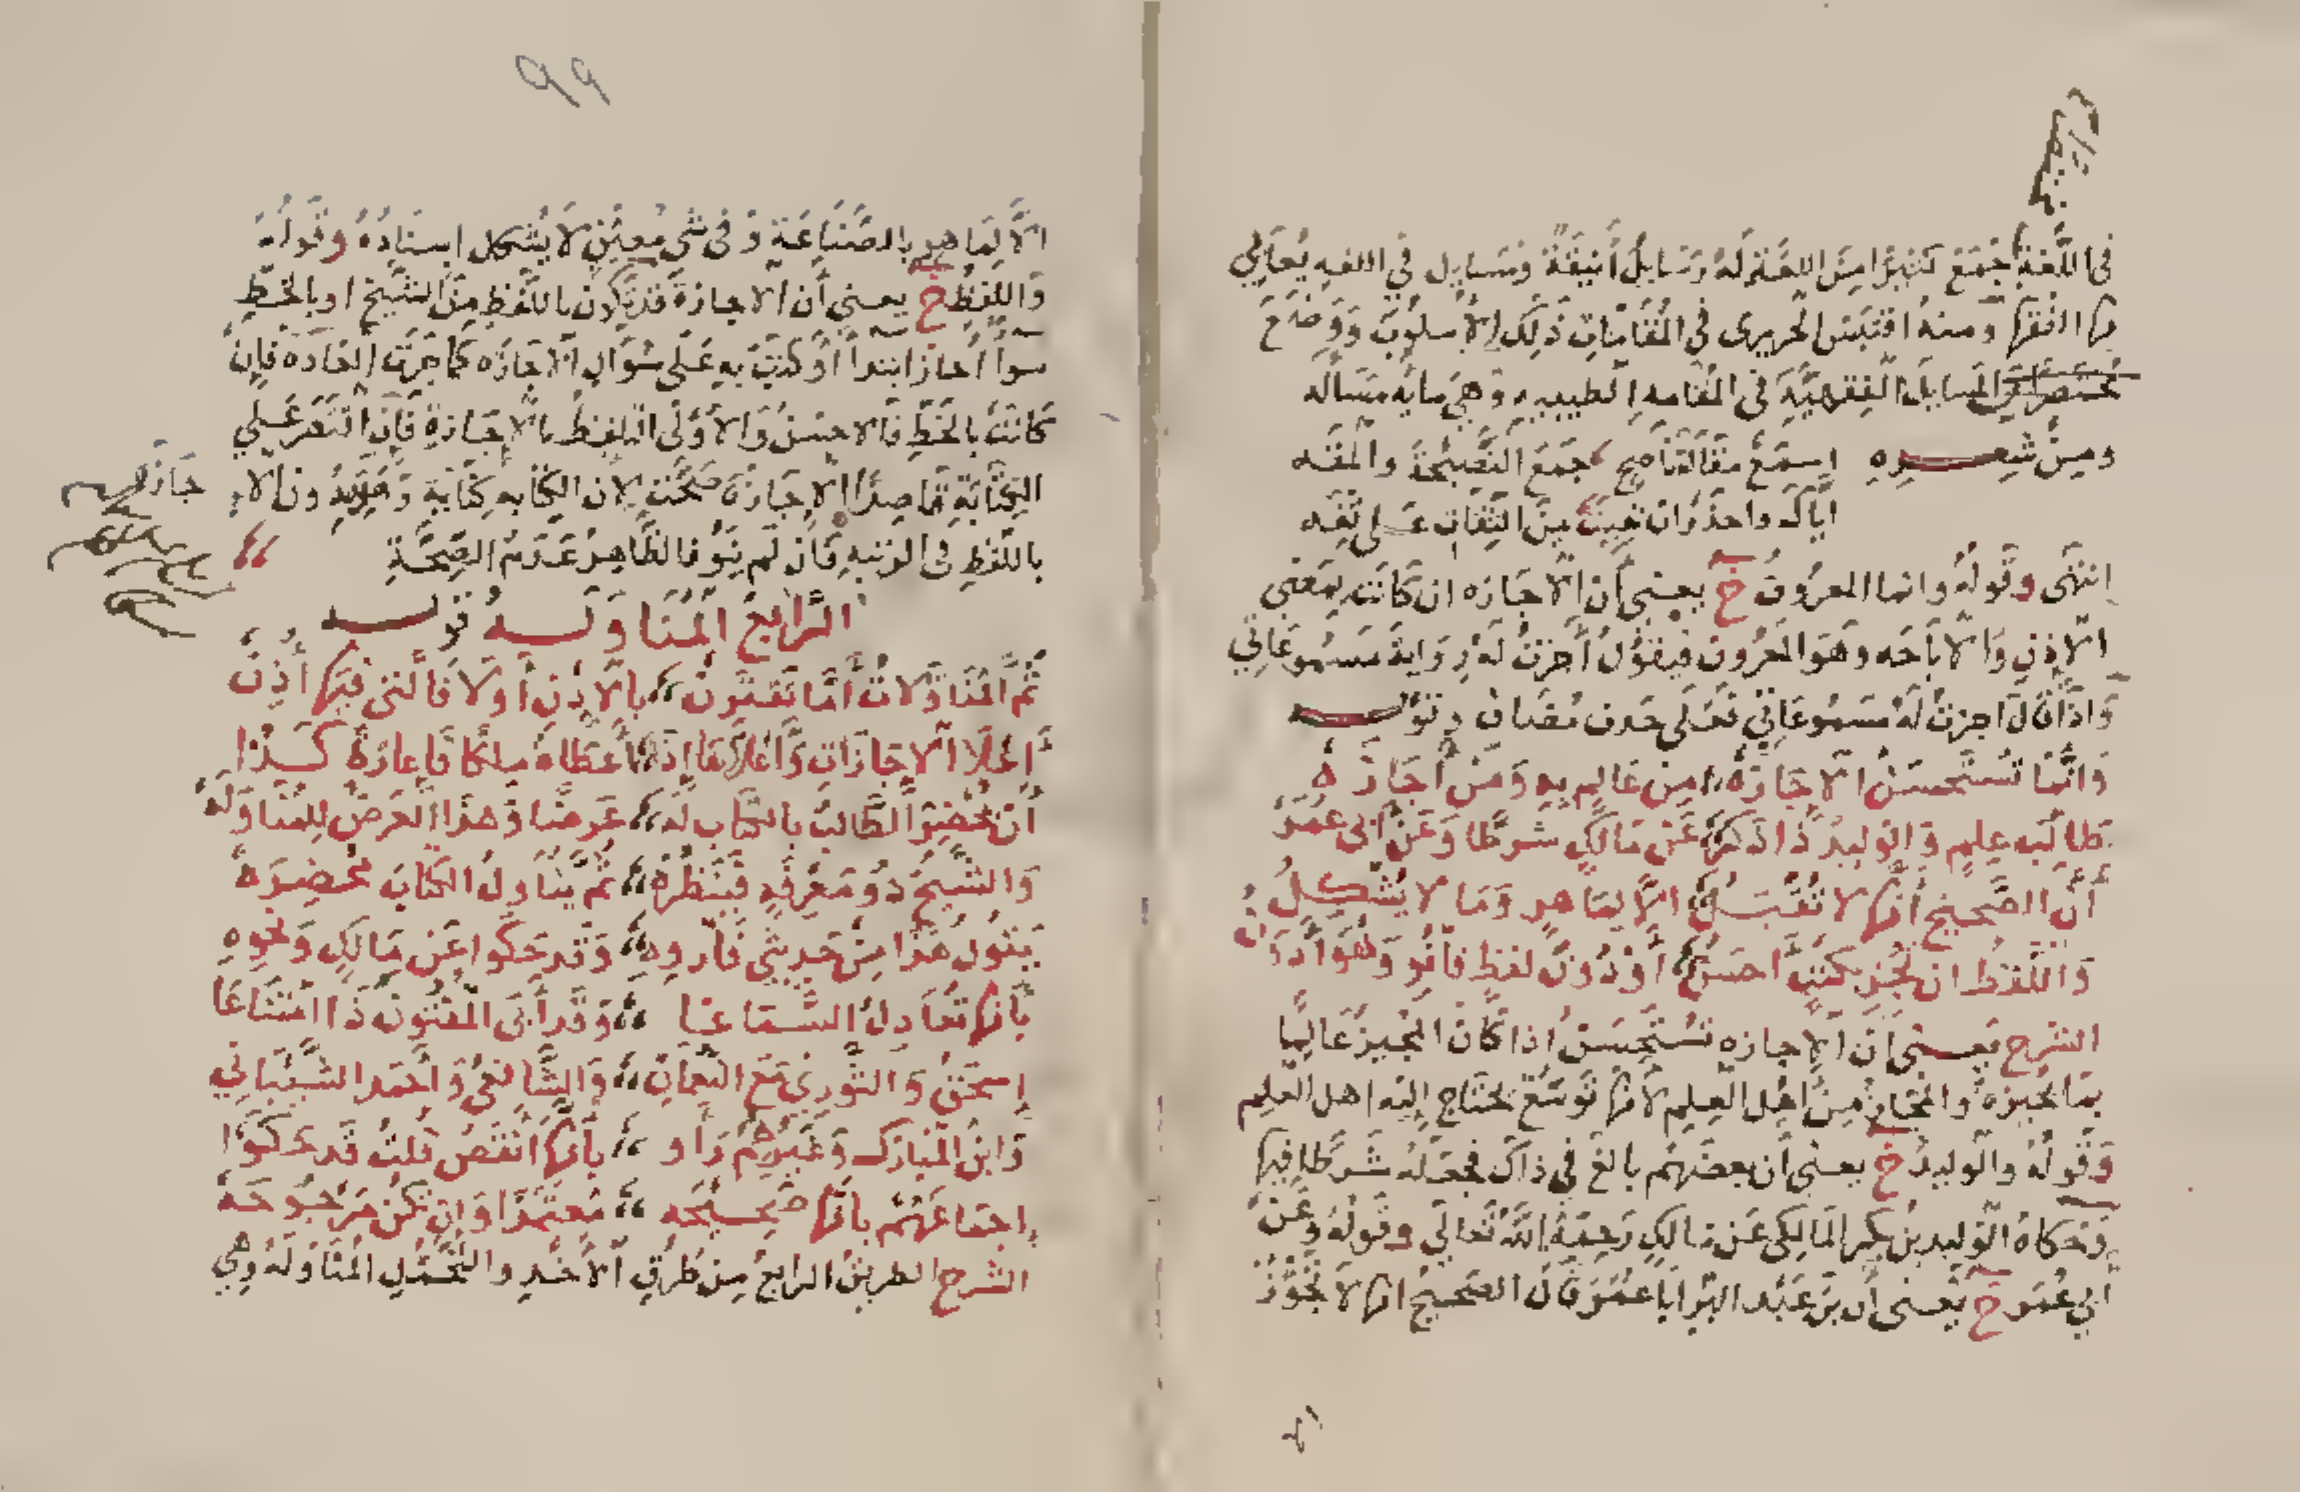 في اللغة جمع كثيرا من اللغة له رسايل أنيقة ومسايل في اللغه يعايي
بها الفقها ومنه اقتبس الحريرى في المقامات ذلك الاسلوب ووضع
المسايل الفقهية في المقامه الطيبيه وهي مايه مسأله
ومن شعره اسمع مقالة ناصح جمع النصيحة والمقه
اياك واحذر ان تبيت من الثقات على ثقه
انتهى وقوله وانما المعروف خ يعني أن الاجازه ان كانت بمعني
الإذن والاباحه وهو المعروف فيقول أجزت له رواية مسموعاتي
واذا قال اجزت له مسموعاتي فعلى حذف مضاف وقوله
وانما تستحسن الاجازه من عالم به ومن أجازه
طالب علم والوليد ذا ذكر عن مالك شرطا وعن أبي عمر
أن الصحيح أنها لا تقبل إلا لماهر وما لا يشكل
واللفظ ان تجز بكتب احسن أو دون لفظ فانو وهو أدون
الشرح يعني أن الإجازه تستحسن اذا كان المجيز عالما
بما يجيزه والمجاز من اهل العلم لأنها توسع يحتاج إليه اهل العلم
وقوله والوليد خ يعني أن بعضهم بالغ في ذاك فجعله شرطا فيها
وحكاه الوليد بن بكر المالكي عن مالك رحمة الله تعالى وقوله وعن
أبي عمر خ يعنى أن بن عبد البر أبا عمر قال الصحيح انها لا تجوز
٩٩
الا لماهر بالصناعة وفى شى معين لا يشكل اسناده وقوله
واللفظ خ يعني أن الاجازة قد تكون باللفظ من الشيخ او بالخط
سوآ أجاز ابتدأ أو كتب به على سؤال الاجازه كما جرت العادة فان
كانت بالخط فالاحسن والاولى التلفظ بالإجازة فإن اقتصر علي
الكتابة قاصدا الإجازة صحت لان الكتابه كناية وهذه دون الا جازه
باللفظ في الرتبه فان لم ينو فالظاهر عدم الصحة
الرابع المناوله قوله
ثم المناولات أما تقترن بالاذن أو لا فالتي فيها أذن
أعلا الاجازات وأعلاها إذا أعطاه ملكا فإعارة كذا
أن يحضر الطالب بالكتاب له عرضا وهذا العرض للمناوله
والشيخ ذو معرفه فينظره ثم يناول الكتاب محضره
يقول هذا من حديثي فاروه وقد حكوا عن مالك ونحوه
بأنها تعادل السماعا وقد أبى المفتون ذا امتناعا
إسحق والثوري مع النعمان والشافعي وأحمد الشيباني
وابن المبارك وغيرهم رأوا بأنها أنقص قلت قد حكوا
إجماعهم بأنها صحيحه معتمدا وان تكن مرجوحه
الشرح الطريق الرابع من طرق الأخذ والتحمل المناوله وهي